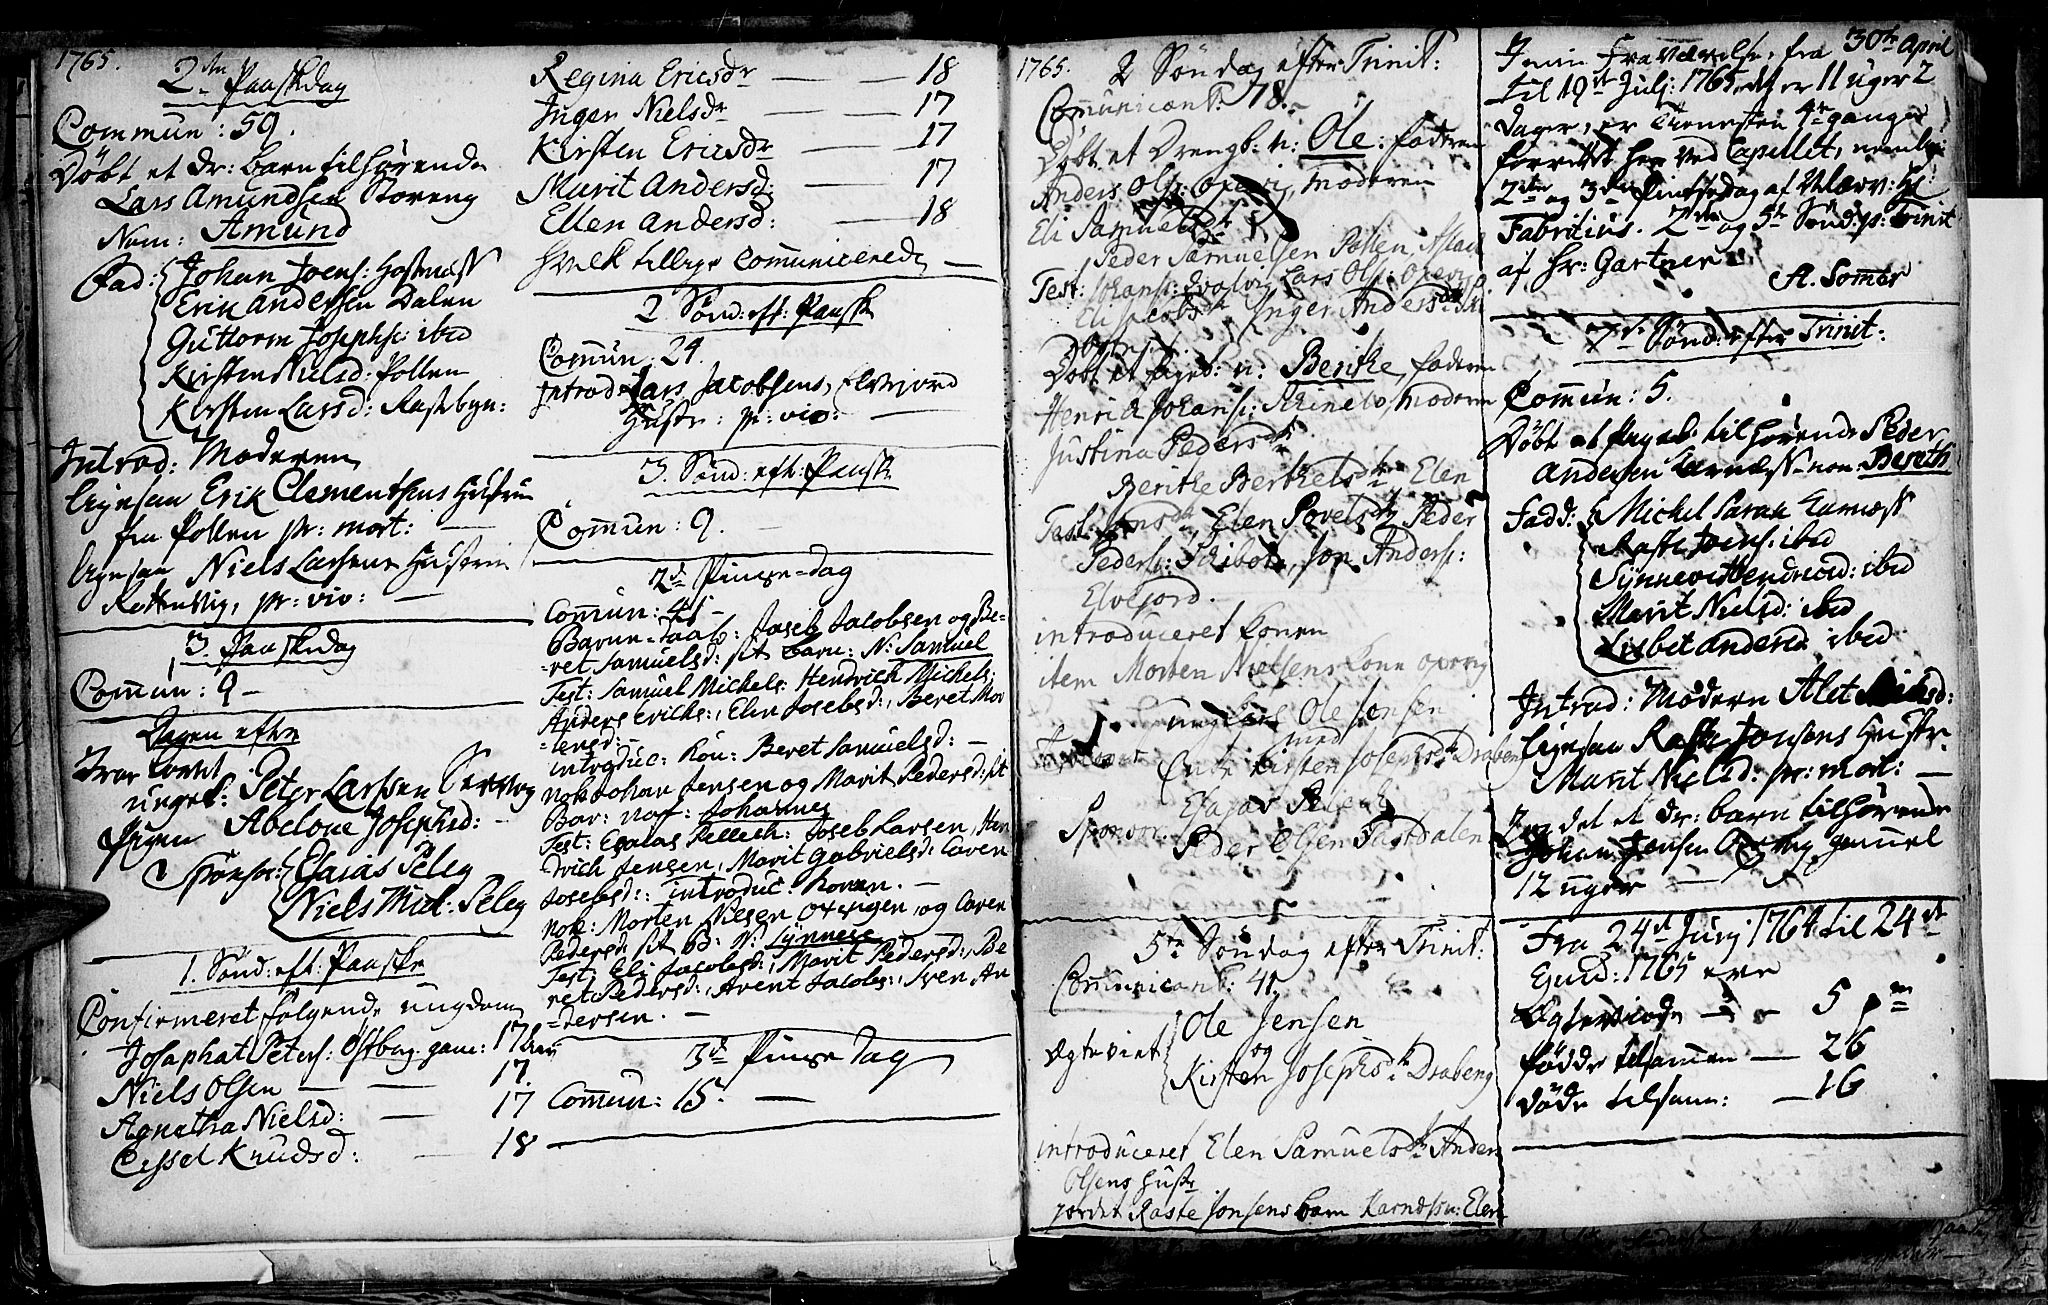 1765.
2den Paaskedag
Commun: 59.
Döbt et dr: barn tilhørende
Lars Amundsen Storeng
Nom: Amund
Fad: Johan Joens:
Erik Andersen Dalen
Guttorm Josephs: ibid
Kirsten Nielsd: Pollen
Kirsten Larsd: Rastebyn:
Introd: Moderen
Ligesaa Erik Clementsens Hustrue
fra Pollen pr: mort:
Ligesaa Niels Larsens Hustrue
pr: viv:
3. Paaskedag
Commun: 9
Dagen efter
Trolovet
ungk: Peter Larssen
Pigen Abelone Josephsd:
Sponsor: Esaias Peleg
Niels Mich: Peleg
1. Sønd: eft: Paaske
Confirmeret følgende ungdom
Josaphat Peters: Østbye gam: 17 aar
Niels Olsen 17
Agnetha Nielsd: 17
Cissel Knudsd: 18
Regina Ericsdr 18
Inger Nielsdr 17
Kirsten Ericsdr 17
Marit Andersd: 17
Ellen Andersd: 18
hvilke tillige communicerede
2 Sønd: eft: Paaske
Commun: 24.
Introd: Lars Jacobsens, Elvejord
Hustr: pr: viv:
3. Sønd: eft: Paaske
Commun: 9.
2d Pinse-dag
Commun: 41
Barne-Daab: Joseb Jacobsen og Be-
-ret Samuelsd: sit Barn: N: Samuel
Test: Samuel Michels: Hendrich Michels:
Anders Erichs:, Elen Josebsd:, Beret Mor
-tensd:
introduc: Kon: Beret Samuelsd:
nok Johan Jensen og Marit Pedersd: sit
Bar: naf: Johannes
Test: Esaias Pellech: Joseb Larsen, Hen
drich Jensen, Marit Gabrielsd: Caren
Josebsd: introduc: Konen.
nok: Morten Nilsen Oxevigen, og Caren
Pedersd: sit B: N: Synneve
Test: Eli Jacobsd:, Marit Pedersd:, Be
ret Pedersd:, Arent Jacobs:, Sven An
-dersen.
3d Pinse Dag
Commun: 15.
1765.
2 Søndag efter Trinit:
Communicant: 18.
Døbt et Drengb: n: Ole: faderen
Anders Ols: Oxevig, moderen
Eli Samuelsdr
Peder Samuelsen Pollen,
Test: Johans: Lars Ols: Oxevig
Eli Jacobsdr Inger Andersdr
Døbt et Pigeb: n: Berithe, faderen
Henrich Johans: moderen
Justina Pedersdr
Berithe Berthelsdr, Elen
Test: Elen Povelsdr Peder
Peders: Jon Anders:
Elvejord.
introduceret konen
item Morten Nielsens kone Oxevig
ungkarl Ole Jensen
med
Kirsten Josephsdr Draberg
Esajas
Sponsor. Peder Olsen Fastdalen
5te Søndag efter Trinit:
Communicant: 41
Ægteviet Ole Jensen
og
Kirsten Josephsdr Draberg
introduceret Elen Samuelsdr Anders
Olsens hustr
jordet Raste Jonsens barn n: Elen
I min fraværelse, fra 30te April
til 19de Julj: 1765, det er 11 uger 2
dager, er tienesten 4re ganger
forrettet her ved Capellet, nemlig:
2den og 3die Pintsedag af Velærv: Hr
Fabritius. 2den og 5te Sønd: p: Trinit
af Hr: Gartner
A. Sommer
7de Sønd: efter Trinit:
Commun: 5.
Døbt et Pigeb: tilhørende Peder
Andersen nom: Berith
Fadd: Michel Sarak
Raste Joens: ibid
Synnevi Hendricsd: ibid
Marit Nielsd: ibid
Lisbet Andersd: ibid
Introd: Modern Alet
Ligesaa Raste Jonsens Hustr:
Marit Nielsd: pr: mort:
Jordet et dr: barn tilhørende
Johan Jensen Oxevig, gammel
12 uger
Fra 24de Junj 1764 til 24de
Ejusd: 1765 ere
Ægteviede 5 p
fødde tilsammen 26
døde tilsam: 16